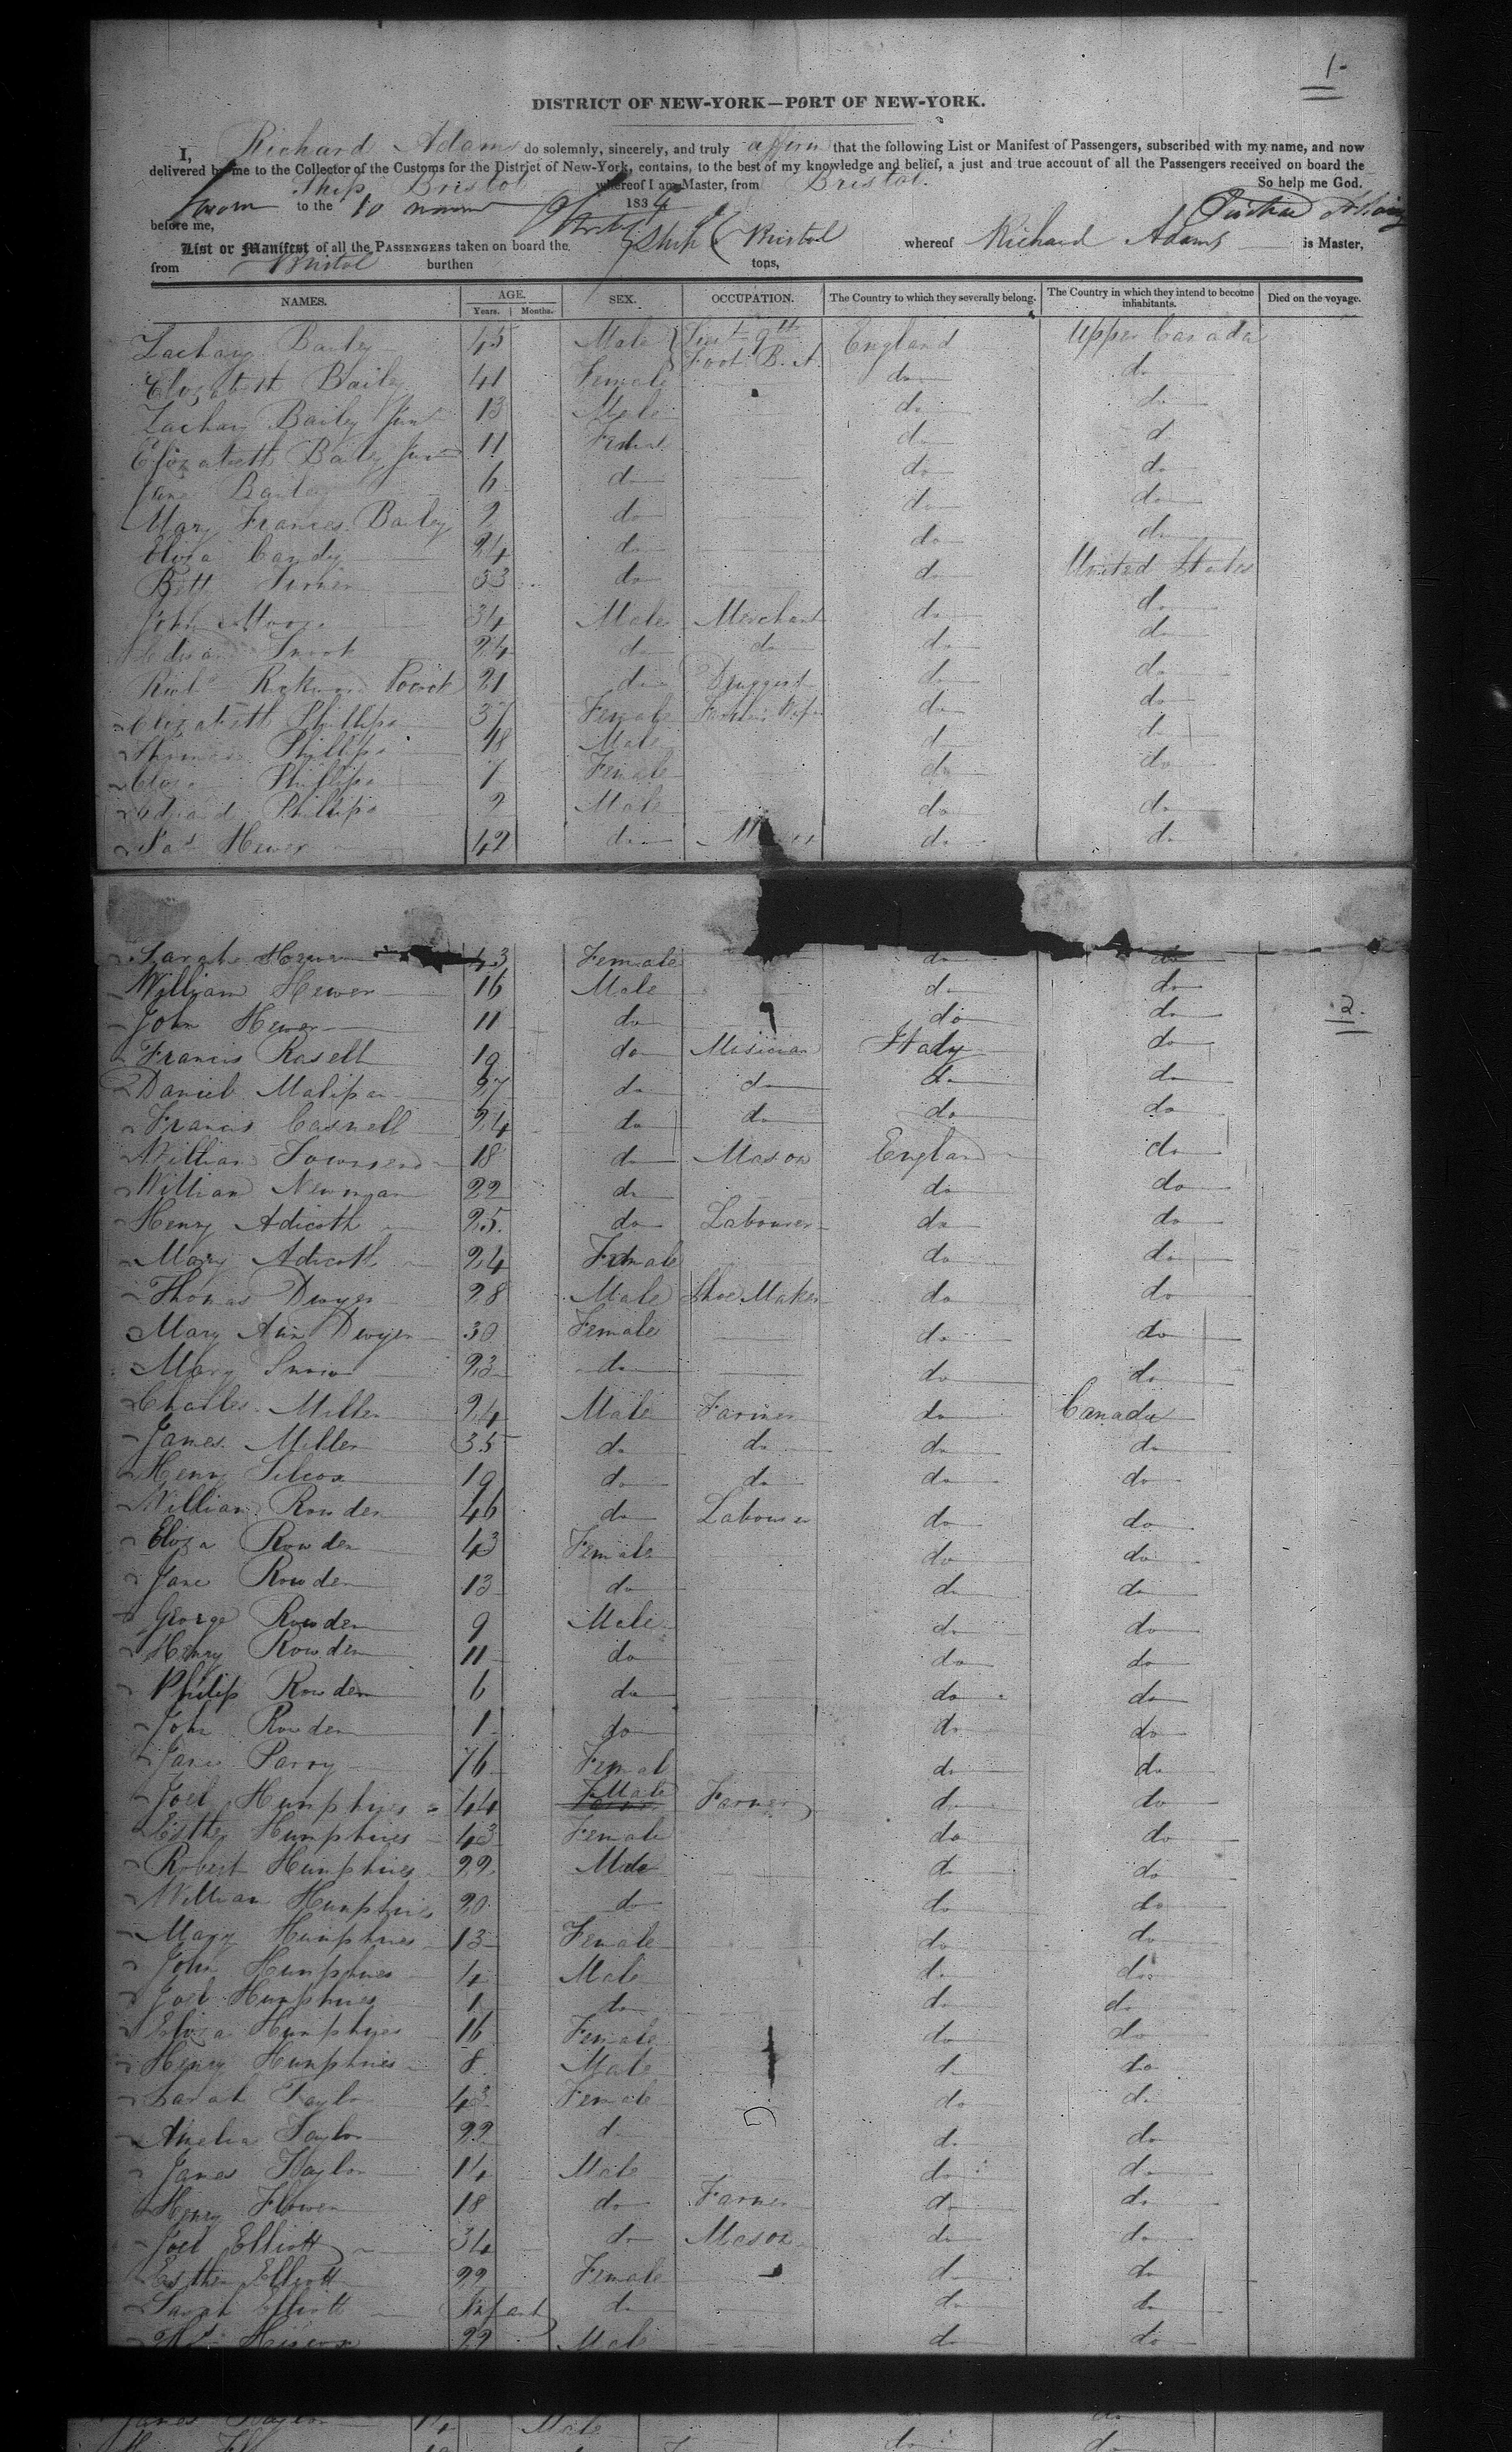 1-
DISTRICT OF NEW-YORK—PORT OF NEW-YORK.
I, Richard Adams do solemnly, sincerely, and truly affirm that the following List or Manifest of Passengers, subscribed with my name, and now
delivered by me to the Collector of the Customs for the District of New-York, contains, to the best of my knowledge and belief, a just and true account of all the Passengers received on board the
Ship Bristol whereof I am Master, from Bristol. So help me God.
Sworn to the 10 1834
before me,
List or Manifest of all the PASSENGERS taken on board the Ship Bristol whereof Richard Adams is Master,
from Bristol burthen tons,
NAMES. AGE. Years. Months. SEX. OCCUPATION. The Country to which they severally belong. The Country in which they intend to become inhabitants. Died on the voyage.
Zachary Bailey 45 Male Lieut 9th Foot B. A. England Upper Canada
Elizabeth Bailey 41 Female do do
Zachary Bailey Junr 13 Male do do
Elizabeth Bailey Junr 11 Female do do
Jane Bailey 6 do do do
Mary Frances Bailey 2 do do do
Eliza Candy 24 do do do
Bett Turner 33 do do United States
John Moore 34 Male Merchant do do
Edward Snook 24 do do do do
Richd Pocock 21 do Druggist do do
Elizabeth Phillips 37 Female Farmers Wife do do
Thomas Phillips 18 Male do do
Phillips 7 Female do do
Edward Phillips 2 Male do do
Hewer 42 do do do
Sarah Hewer 43 Female do do
William Hewer 16 Male do do
John Hewer 11 do do do
2.
Francis Rasell 19 do Musician Italy do
Daniel Malipan 27 do do do do
Francis Casnell 24 do do do do
William Townsend 18 do Mason England do
William Newman 22 do do do
Henry Adicoth 25 do Labourer do do
Mary Adicoth 24 Female do do
Thomas Dwyer 28 Male Shoe Maker do do
Mary Ann Dwyer 30 Female do do
Mary Snow 23 do do do
Charles Miller 24 Male Farmer do Canada
James Miller 35 do do do do
Henry Silcox 19 do do do do
William Rowden 46 do Labourer do do
Eliza Rowden 43 Female do do
Jane Rowden 13 do do do
George Rowden 9 Male do do
Henry Rowden 11 do do do
Philip Rowden 6 do do do
John Rowden 1 do do do
Jane Parry 76 Female do do
Joel Humphries 44 Male Farmer do do
Esther Humphries 43 Female do do
Robert Humphries 22 Male do do
William Humphries 20 do do do
Mary Humphries 13 Female do do
John Humphries 4 Male do do
Joel Humphries 1 do do do
Eliza Humphries 16 Female do do
Henry Humphries 8 Male do do
Sarah Taylor 43 Female do do
Amelia Taylor 22 do do do
James Taylor 14 Male do do
Henry Flower 18 do Farmer do do
Joel Elliott 34 do Mason do do
Esther Elliott 22 Female do do
Sarah Elliott Infant do do do
Hiscox 22 Male do do
James Taylor 14 Male do